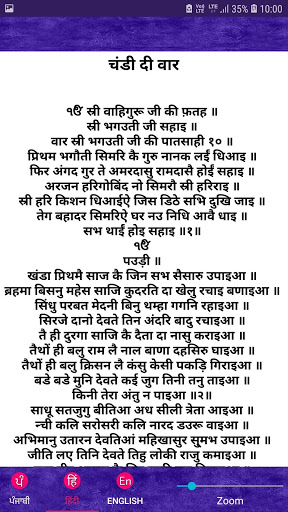 35% 10:00
चंडी दी वार
ੴ स्री वाहिगुरू जी की फ़तह ॥
स्री भगउती जी सहाइ ॥
वार स्री भगउती जी की पातसाही १० ॥
प्रिथम भगौती सिमरि कै गुरु नानक लईं धिआइ ॥
फिर अंगद गुर ते अमरदासु रामदासै होईं सहाइ ॥
अरजन हरिगोबिंद नो सिमरौ स्री हरिराइ ॥
स्री हरि किशन धिआईऐ जिस डिठे सभि दुखि जाइ ॥
तेग बहादर सिमरिऐ घर नउ निधि आवै धाइ ॥
सभ थाईं होइ सहाइ ॥१॥
ੴ
पउड़ी ॥
खंडा प्रिथमै साज कै जिन सभ सैसारु उपाइआ ॥
ब्रहमा बिसनु महेस साजि कुदरति दा खेलु रचाइ बणाइआ ॥
सिंधु परबत मेदनी बिनु थम्हा गगनि रहाइआ ॥
सिरजे दानो देवते तिन अंदरि बादु रचाइआ ॥
तै ही दुरगा साजि कै दैता दा नासु कराइआ ॥
तैथों ही बलु राम लै नाल बाणा दहसिरु घाइआ ॥
तैथों ही बलु क्रिसन लै कंसु केसी पकड़ि गिराइआ ॥
बडे बडे मुनि देवते कई जुग तिनी तनु ताइआ ॥
किनी तेरा अंतु न पाइआ ॥२॥
साधू सतजुगु बीतिआ अध सीली त्रेता आइआ ॥
न्ची कलि सरोसरी कलि नारद डउरू वाइआ ॥
अभिमानु उतारन देवतिआं महिखासुर सु्मभ उपाइआ ॥
जीति लए तिनि देवते तिहु लोकी राजु कमाइआ ॥
ਪੰ हिं En
ਪੰਜਾਬੀ हिंदी ENGLISH Zoom